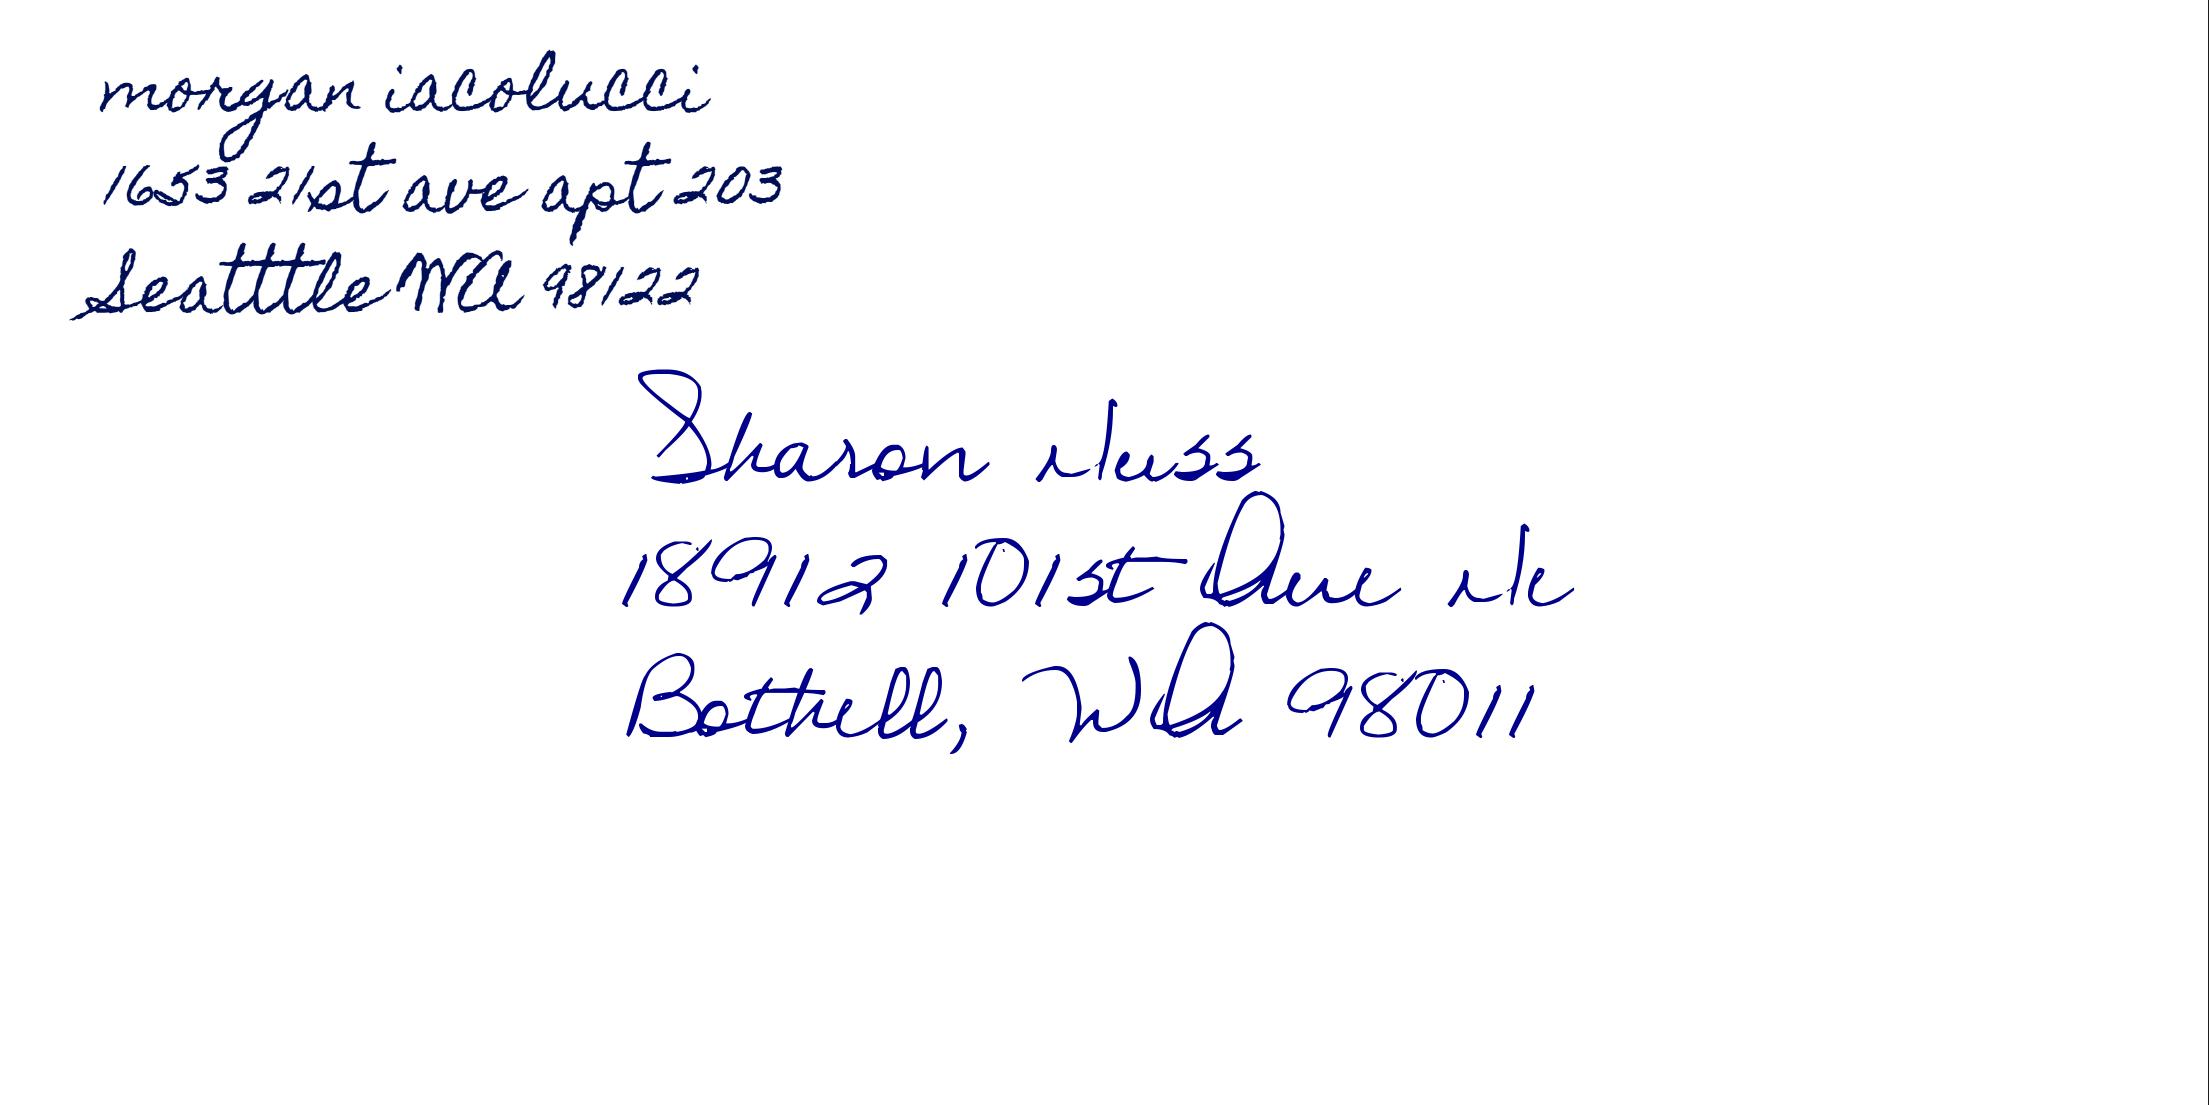 morgan iacolucci
1653 21st ave apt 203
Seatttle WA 98122
Sharon Nuss
18912 101st Ave Ne
Bothell, WA 98011